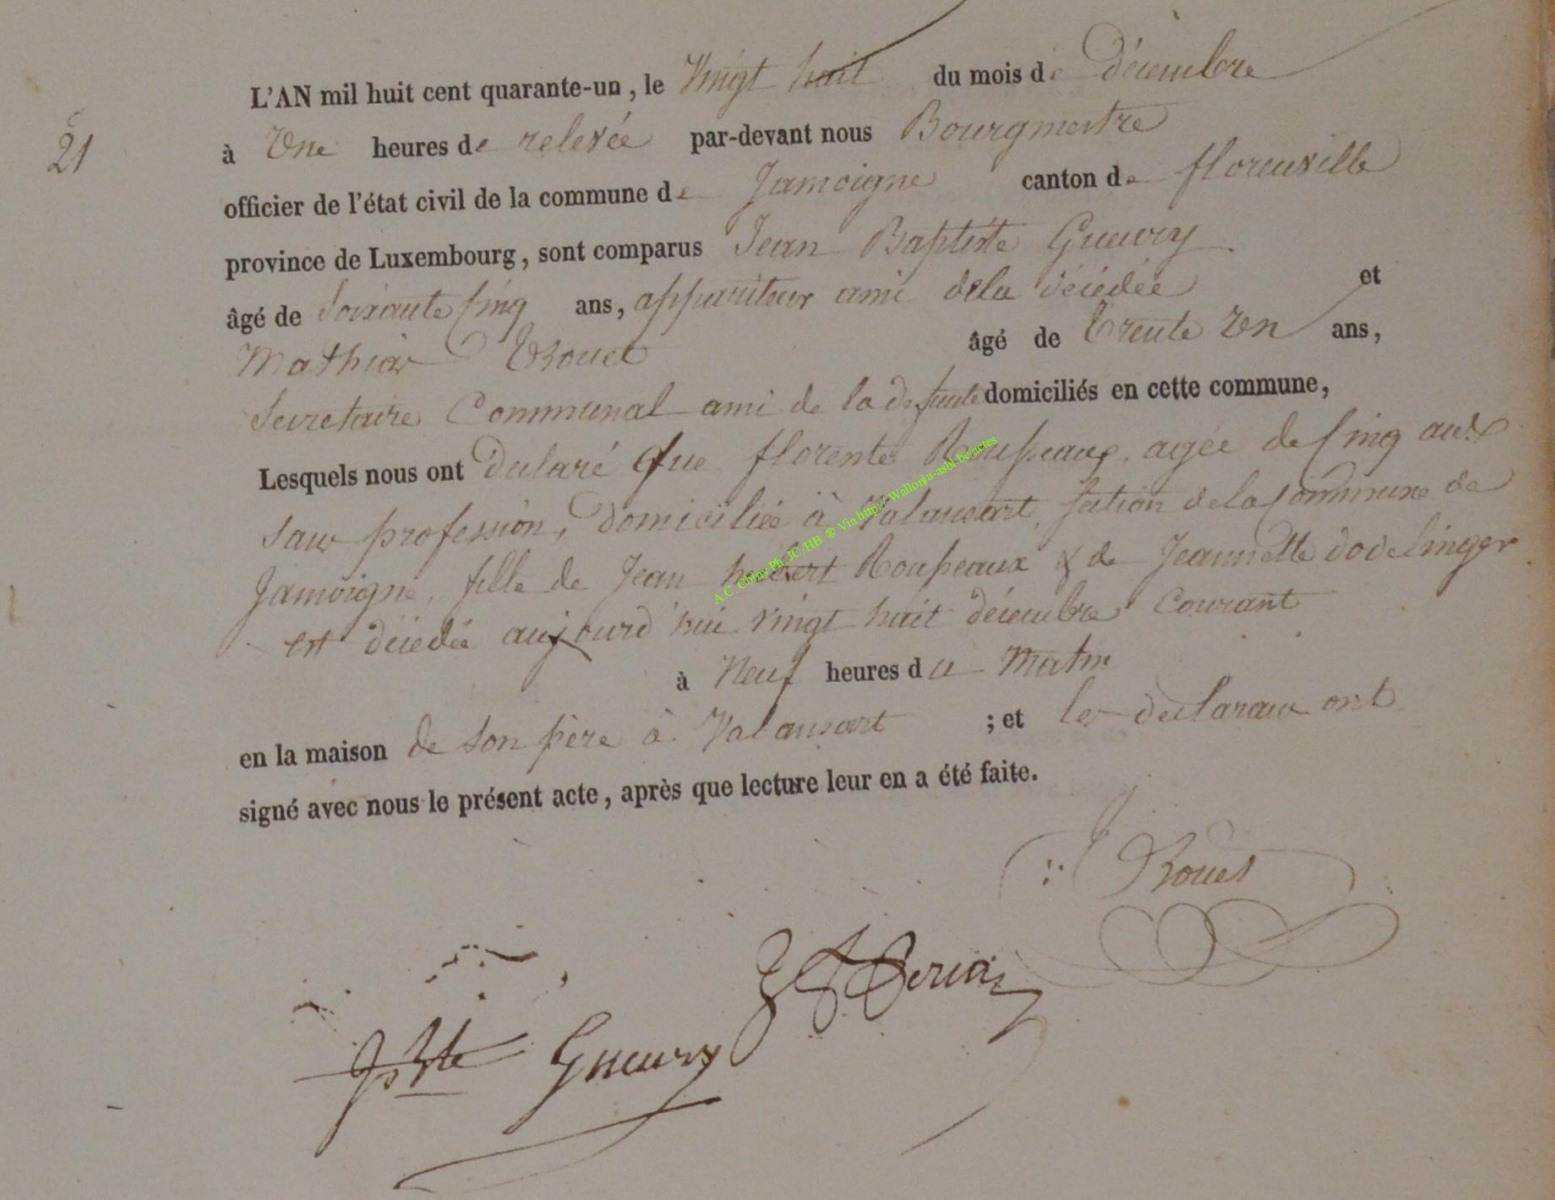 L'AN mil huit cent quarante-un, le Vingt huit du mois de décembre
21
à Une heures de relevée par-devant nous Bourgmestre
officier de l'état civil de la commune de Jamoigne canton de florenville
province de Luxembourg, sont comparus Jean Baptiste Gueury
âgé de Soixante Cinq ans, appariteur ami dela décédée et
Mathias Rouet âgé de Trente Un ans,
Secretaire Communal ami de la defunte domiciliés en cette commune,
Lesquels nous ont declaré que florente Roupeaux, agée de Cinq ans
sans profession, domiciliée à Valansart, section de la Commune de
Jamoigne, fille de Jean hubert Roupeaux & de Jeannette dodelinger
est décédée aujourd'hui vingt huit décembre courant
à Neuf heures du Matin
en la maison de son père à Valansart ; et les declarans ont
signé avec nous le présent acte, après que lecture leur en a été faite.
Rouet
JBte Gueury
A.C. Chiny Ph. JC/HB © Via http://Wallonia-asbl.be/actes